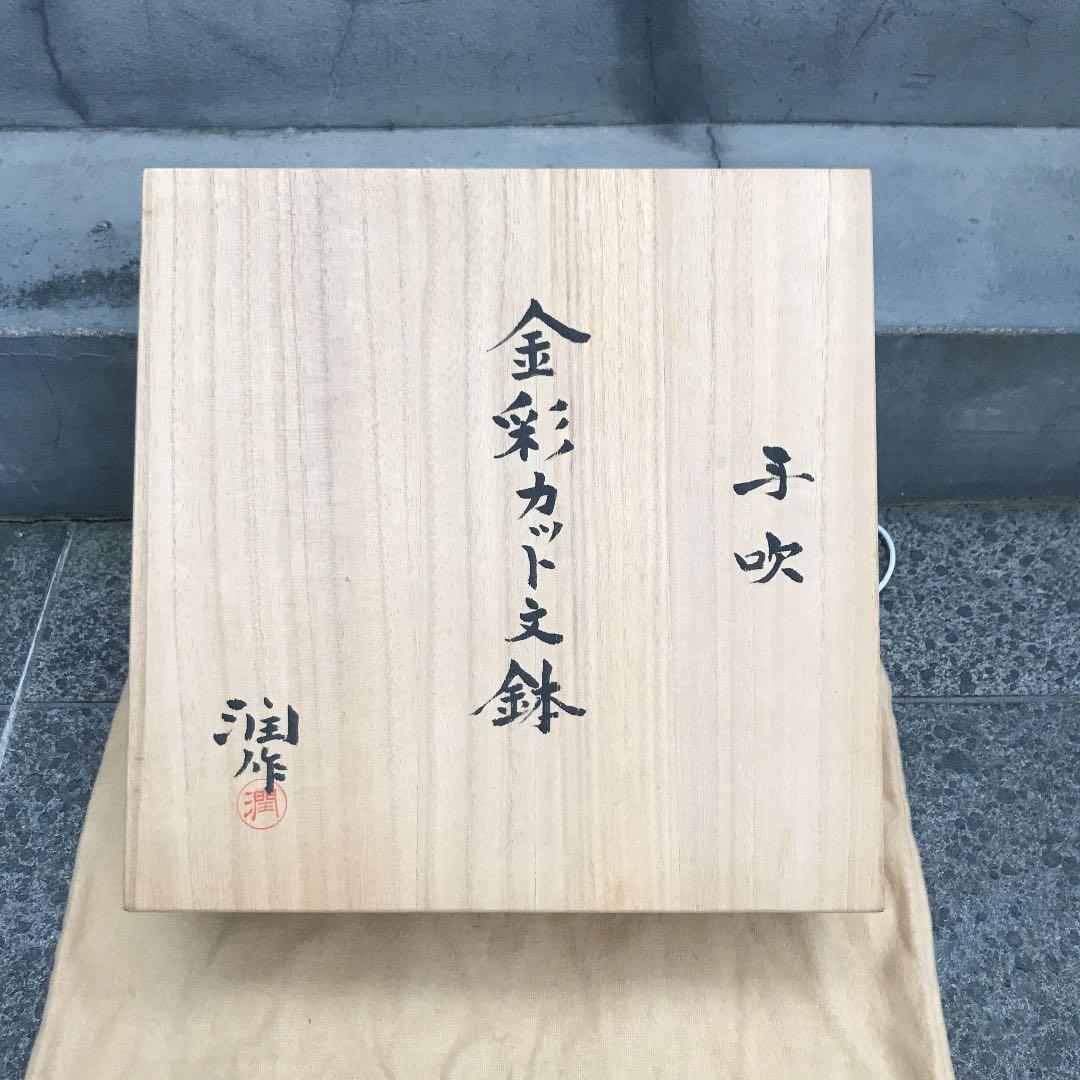 手吹
金彩カット文鉢
潤作
潤